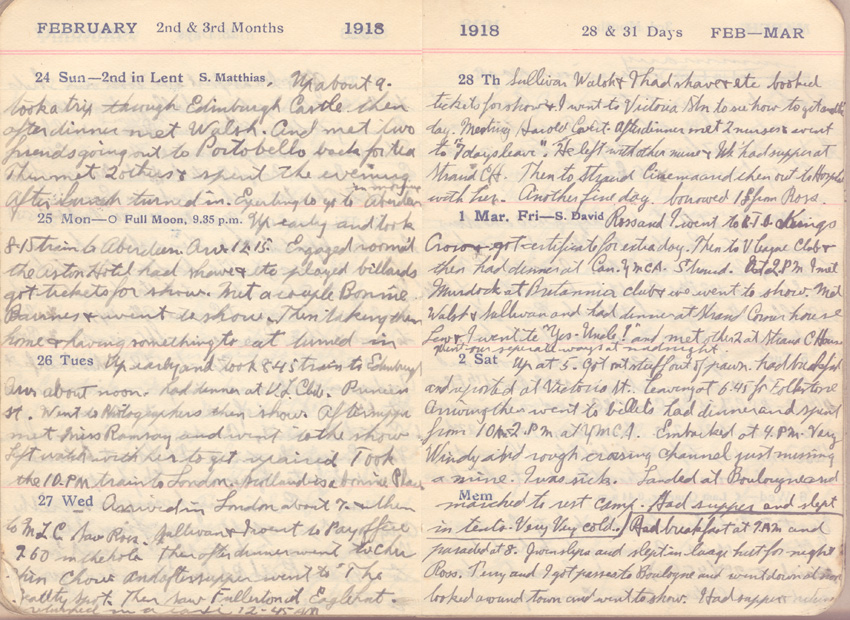 FEBRUARY 2nd & 3rd Months 1918
24 Sun—2nd in Lent S. Matthias. Up about 9.
took a trip through Edinburgh Castle then
after dinner met Walsh. And met two
friends going out to Portobello back for tea
Then met 2 others & spent the evening
After lunch turned in. Expecting to go to Aberdeen
in morning
25 Mon—O Full Moon, 9.35 p.m. Up early and took
8-15 train to Aberdeen. Arr. 12.15. Engaged room at
the Hotel had shave & etc played billiards
got tickets for show. Met a couple Bonnie
& went to show. Then taking them
home & having something to eat turned in
26 Tues Up early and took 8.45 train to Edinburgh
Arr about noon. Had dinner at Club. Princess
St. Went to Photographers then show. After supper
met Miss Ramsay and went to the show
Left watch with her to get repaired Took
the 10.P.M train to London. Scotland is a bonnie Place
27 Wed Arrived in London about 7. & then
to M.L.C. Saw Ross. Sullivan & I went to Pay office
£60 in the hole then after dinner went to Chu
Chin Chow and after supper went to "The
Spot. Then saw Fullerton at
returned in a taxi 12-45 am
1918 28 & 31 Days FEB—MAR
28 Th Sullivan Walsh & I had shave & etc booked
tickets for show & I went to Victoria Stn to see how to get
day. Meeting Harold After dinner met 2 nurses & went
to "7 days leave". He left with other nurse & We had supper at
Strand C.H. Then to Strand Cinema and then out to Hospital
with her. Another fine day. borrowed 1£ from Ross.
1 Mar. Fri—S. David Ross and I went to Kings
Cross & got certificate for extra day. Then to Club &
then had dinner at Can. YMCA. Strand. At 2.P.M I met
Murdock at Britannia club & we went to show. Met
Walsh & Sullivan and had dinner at Strand Corner house
& I went to "Yes-Uncle!" and met other 2 at Strand C House
Went our separate ways at midnight.
2 Sat Up at 5. Got out stuff out of pawn. had breakfast
and reported at Victoria St. leaving at 6.45 for Folkestone
Arriving then went to billets had dinner and spent
from 10 to 2.P.M at YMCA. Embarked at 4.P.M. Very
Windy and rough crossing channel just missing
a mine. I was sick. Landed at Boulogne and
Mem marched to rest camp. Had supper and slept
in tents. Very Very cold. Had breakfast at 7 AM and
paraded at 8. and slept in large hut for night
Ross. Terry and I got passes to Boulogne and went down at noon
looked around town and went to show. Had supper